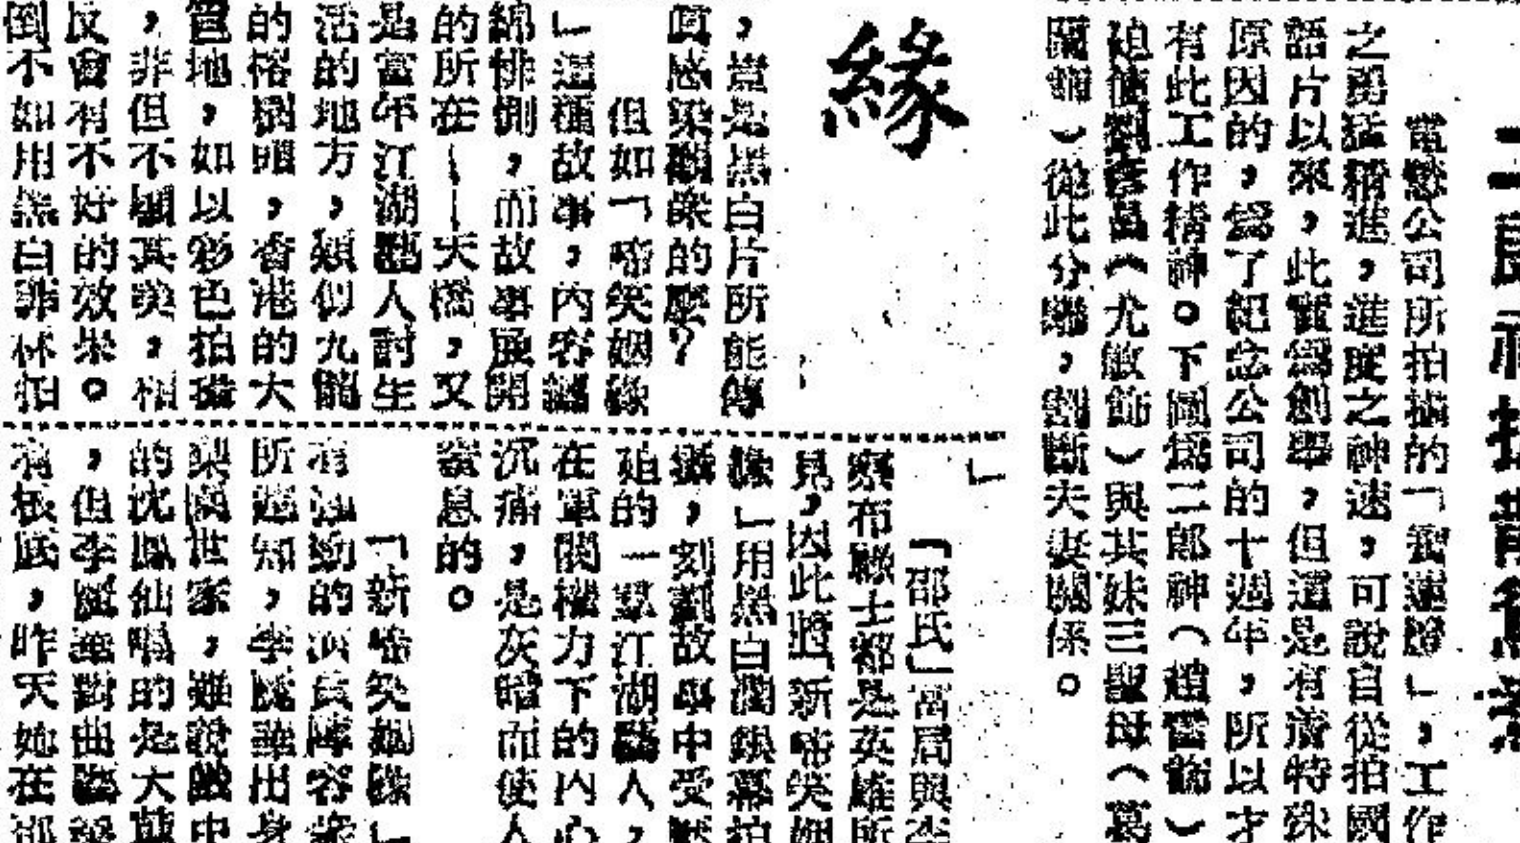 電懋公司所拍攝的「寶蓮燈」，工作
之勇猛精進，進度之神速，可說自從拍國
語片以來，此實為創舉，但這是有着特殊
原因的，為了紀念公司的十週年，所以才
有此工作精神。下圖為二郎神（趙雷飾）
迫使劉彥昌（尤敏飾）與其妹三聖母（葛
蘭飾）從此分離，割斷夫妻關係。
緣
，豈是黑白片所能傳
真感染觀衆的麼？
但如「啼笑姻緣
」這種故事，內容纏
綿悱惻，而故事展開
的所在——天橋，又
是當年江湖藝人討生
活的地方，類似九龍
的榕樹頭，香港的大
笪地，如以彩色拍攝
，非但不顯其美，相
反會有不好的效果。
倒不如用黑白菲林拍
」
「邵氏」當局與李
察布聯士都是英雄所
見，因此將「新啼笑姻
緣」用黑白闊銀幕拍
攝，刻劃故事中受
她的一羣江湖藝人，
在軍閥權力下的內心
沉痛，是灰暗而使人
窒息的。
「新啼笑姻緣」
有強勁的演員陣容
所週知，李麗華出身
梨園世家，雖說戲中
的沈鳳仙唱的是大鼓
，但李麗華對曲藝
有根底，昨天她在邵